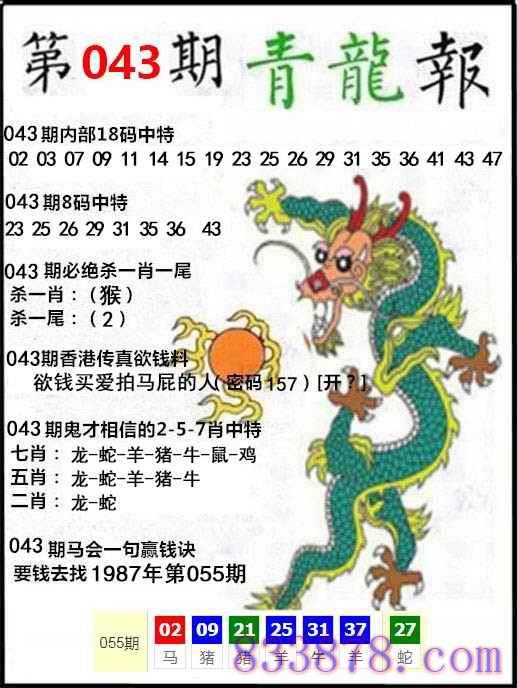 第043期青龍報
043期内部18码中特
02 03 07 09 11 14 15 19 23 25 26 29 31 35 36 41 43 47
043期8码中特
23 25 26 29 31 35 36 43
043 期必绝杀一肖一尾
杀一肖：（猴）
杀一尾：（2）
043期香港传真欲钱料
欲钱买爱拍马屁的人（密码157）[开？]
043期鬼才相信的2-5-7肖中特
七肖：龙-蛇-羊-猪-牛-鼠-鸡
五肖：龙-蛇-羊-猪-牛
二肖：龙-蛇
043 期马会一句赢钱诀
要钱去找1987年第055期
055期 02 09 21 25 31 37 27
马 猪 猪 羊 牛 羊 蛇
833878.com